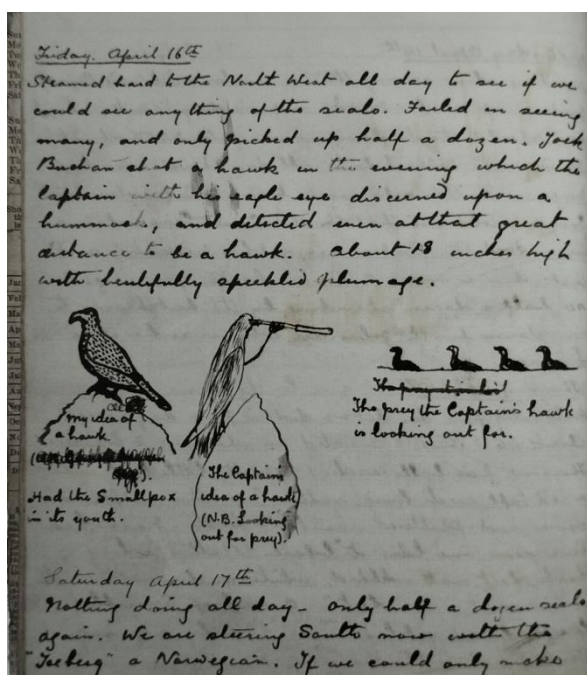 Friday. April 16th
Steamed hard to the North West all day to see if we
could see anything of the seals. Failed in seeing
many, and only picked up half a dozen. Jock
Buchan shot a hawk in the evening which the
Captain with his eagle eye discerned upon a
hummock, and detected even at that great
distance to be a hawk. About 18 inches high
with beutifully speckled plumage.
my idea of
a hawk.
Had the Smallpox
in its youth.
The Captain's
idea of a hawk
(N.B. Looking
out for prey).
The prey the Captain's hawk
is looking out for.
Saturday April 17th
Nothing doing all day - only half a dozen seals
again. We are steering South now with the
"Iceberg" a Norwegian. If we could only make